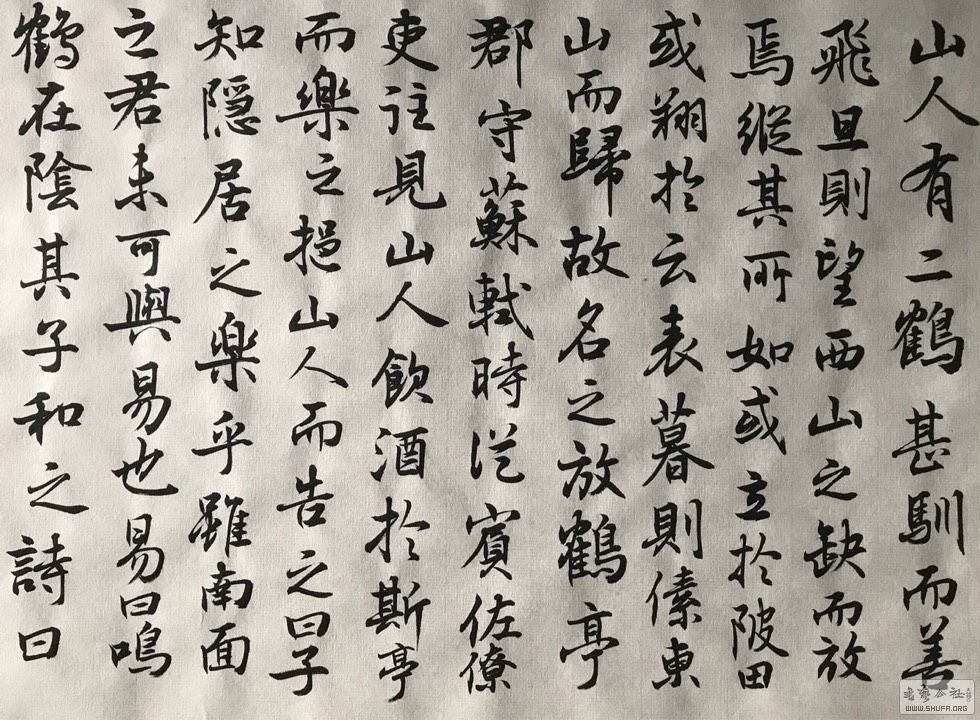 山人有二鶴甚馴而善
飛旦則望西山之缺而放
焉縱其所如或立於陂田
或翔於云表暮則傃東
山而歸故名之放鶴亭
郡守蘇軾時從賓佐僚
吏往見山人飲酒於斯亭
而樂之挹山人而告之曰子
知隱居之樂乎雖南面
之君未可與易也易曰鳴
鶴在陰其子和之詩曰
WWW.SHUFA.ORG